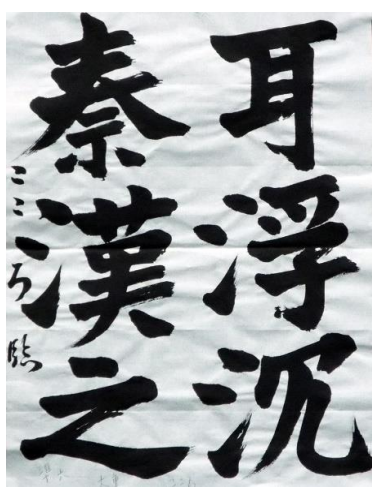 耳浮沉
秦漢之
こころ臨